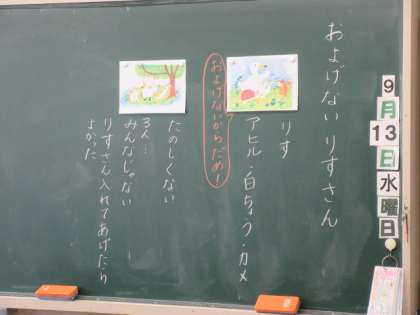 およげない りすさん
りす
アヒル・白ちょう・カメ
およげないからだめ!
たのしくない
3人…
みんなじゃない
りすさん入れてあげたら
よかった
9
月
13
日
水
曜
日